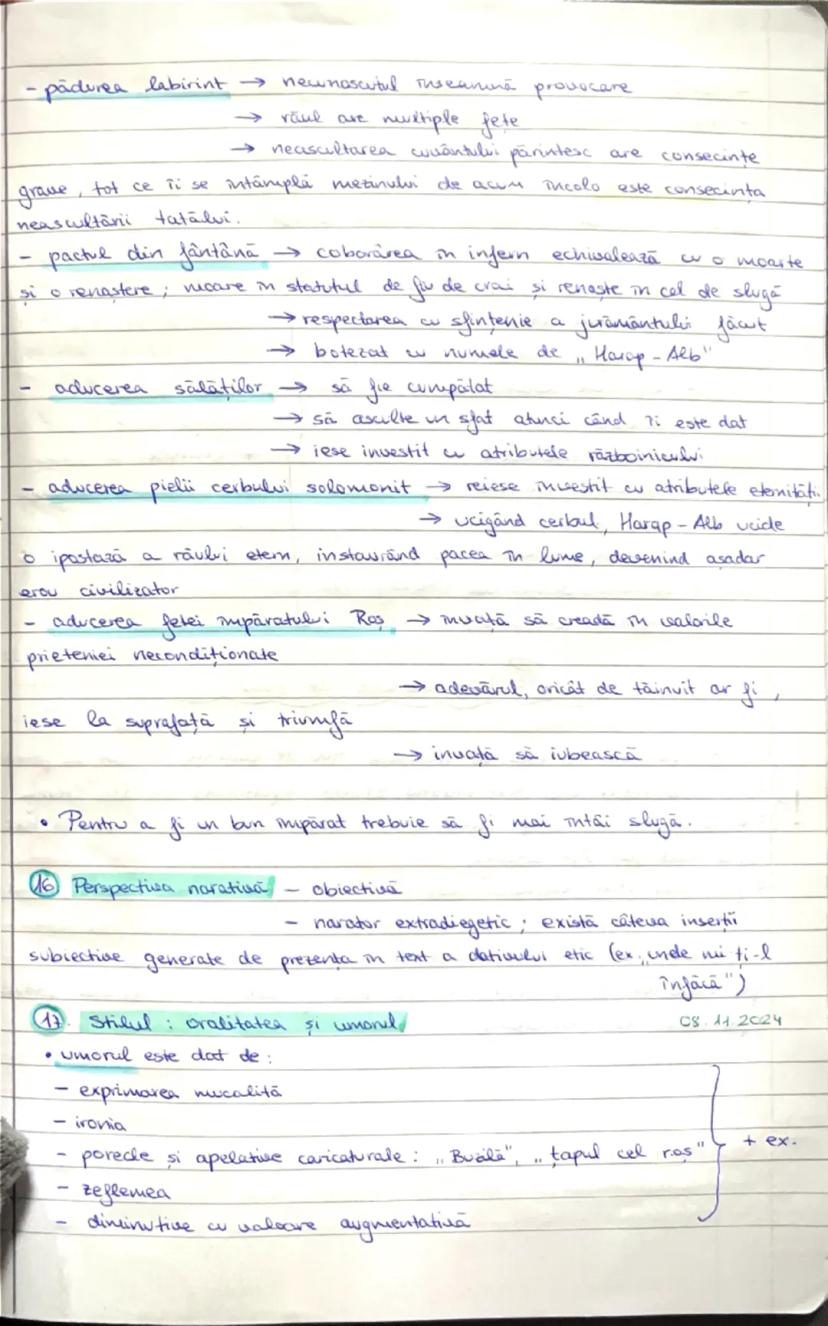 - pădurea labirint → necunoscutul înseamnă provocare
→ răul are multiple fețe
→ neascultarea cuvântului părintesc are consecințe
grave, tot ce îi se întâmplă mezinului de acum încolo este consecința
neascultării tatălui.
- pactul din fântână → coborârea în infern echivalează cu o moarte
și o renaștere; moare în statutul de fiu de crai și renaște în cel de slugă
→ respectarea cu sfințenie a jurământului făcut
→ botezat cu numele de „Harap-Alb"
- aducerea sălăților → să fie cumpătat
→ să asculte un sfat atunci când îi este dat
→ iese investit cu atributele războinicului
- aducerea pielii cerbului solomonit → reiese investit cu atributele eternității
→ ucigând cerbul, Harap-Alb ucide
o ipostază a răului etern, instaurând pacea în lume, devenind așadar
erou civilizator
- aducerea fetei împăratului Roș → învață să creadă în valorile
prieteniei necondiționate
→ adevărul, oricât de tăinuit ar fi,
iese la suprafață și triumfă
→ învață să iubească
• Pentru a fi un bun împărat trebuie să fi mai întâi slugă.
16 Perspectiva narativă - obiectivă
- narator extradiegetic; există câteva inserții
subiective generate de prezența în text a dativului etic (ex: „unde mi ți-l
înfăcă")
17. Stilul: oralitatea și umorul 08.11.2024
• umorul este dat de:
- exprimarea mucalită
- ironia
- porecle și apelative caricaturale: „Buzilă", „țapul cel roș" + ex.
- zeflemea
- diminutive cu valoare augmentativă